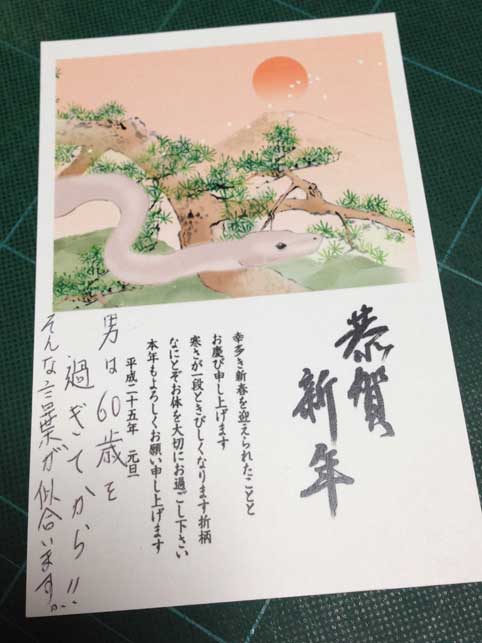 恭賀
新年
幸多き新春を迎えられたことと
お慶び申し上げます
寒さが一段ときびしくなります折柄
なにとぞお体を大切にお過ごし下さい
本年もよろしくお願い申し上げます
平成二十五年 元旦
男は60歳を
過ぎてから!!
そんな言葉が似合います。